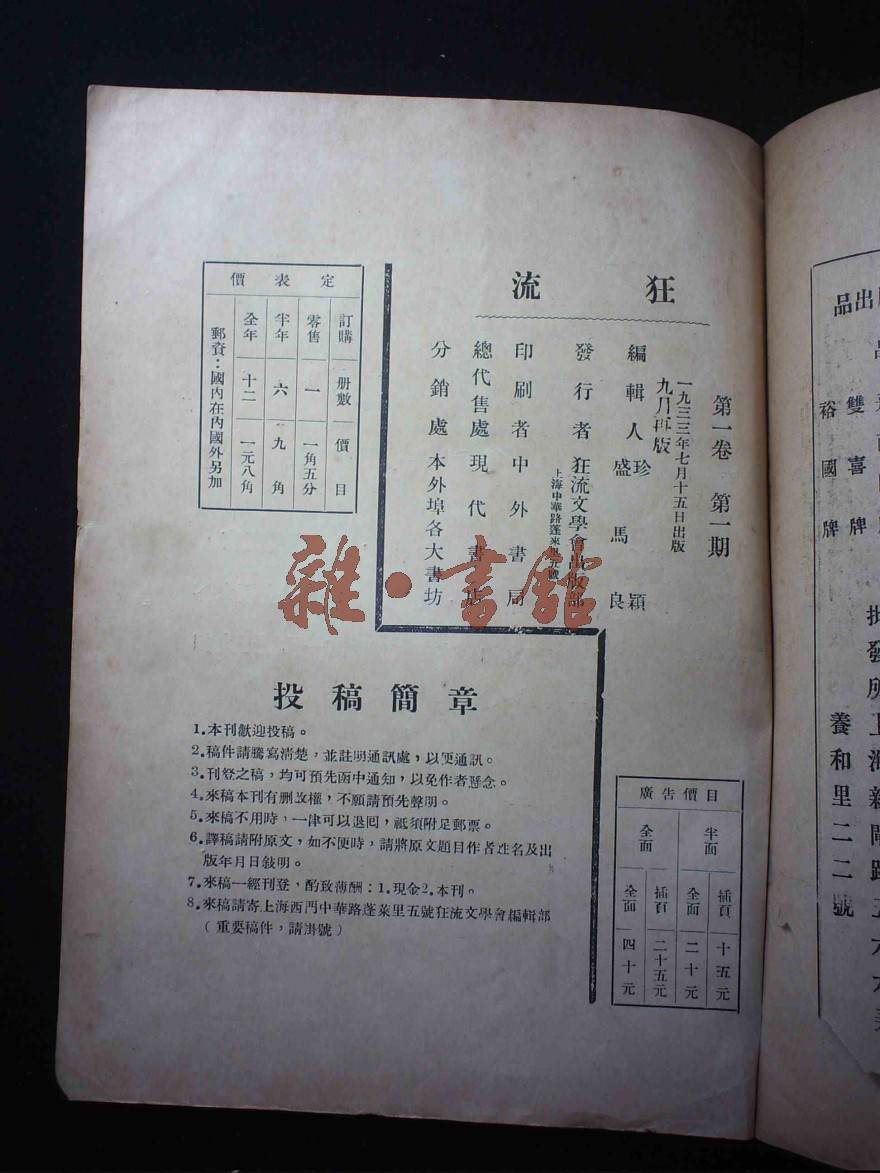 狂流
第一卷 第一期
一九三三年七月十五日出版
九月再版
編輯人 珍 穎
盛馬良
發行者 狂流文學會出版部
上海中華路蓬萊里五號
印刷者 中外書局
總代售處 現代書店
分銷處 本外埠各大書坊
定表價
訂購 册數 價目
零售 一 一角五分
半年 六 九角
全年 十二 一元八角
郵資：國內在內國外另加
雜·書館
投稿簡章
1.本刊歡迎投稿。
2.稿件請騰寫清楚，並註明通訊處，以便通訊。
3.刊登之稿，均可預先函中通知，以免作者懸念。
4.來稿本刊有删改權，不願請預先聲明。
5.來稿不用時，一律可以退囘，祇須附足郵票。
6.譯稿請附原文，如不便時，請將原文題目作者姓名及出
版年月日敍明。
7.來稿一經刊登，酌致薄酬：1.現金2.本刊。
8.來稿請寄上海西門中華路蓬萊里五號狂流文學會編輯部
（重要稿件，請掛號）
廣告價目
半面 插頁 十五元
全面 二十元
全面 插頁 二十五元
全面 四十元
出品
雙喜牌
裕國牌
批發所上海新閘路五六
養和里二二號